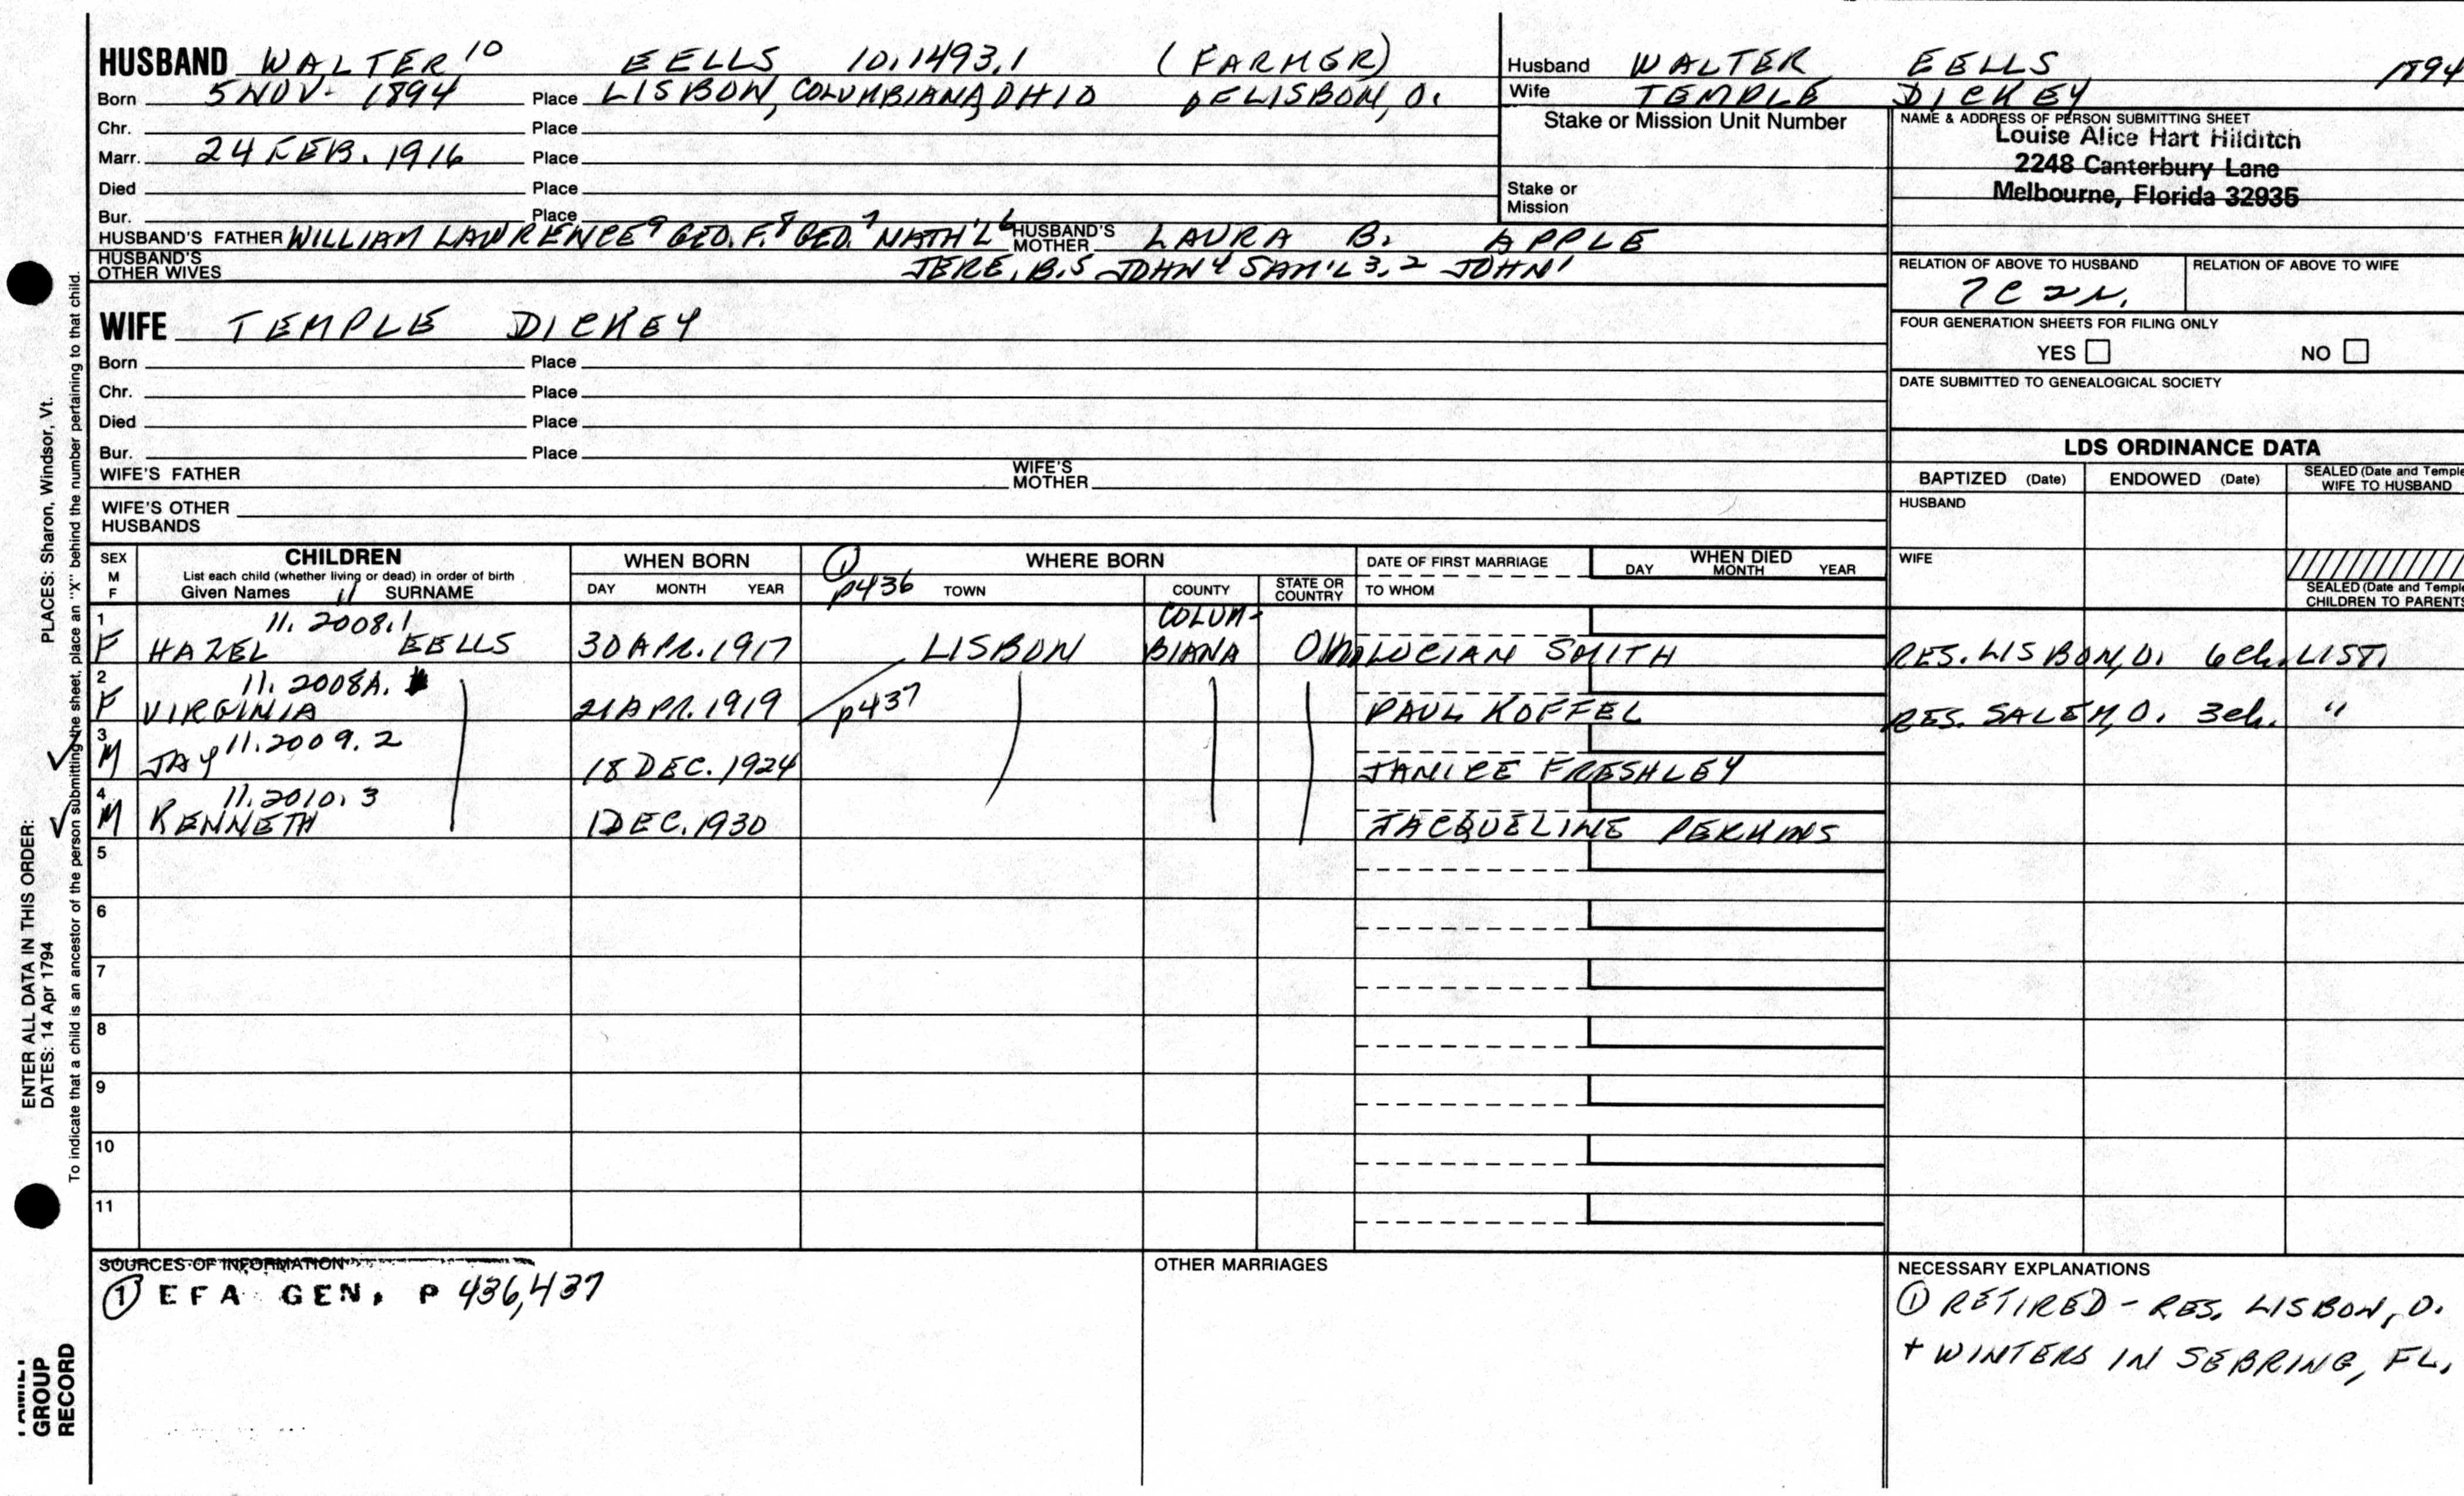 HUSBAND WALTER 10 EELLS 10.1493.1 (FARMER)
Born 5 NOV. 1894 Place LISBON, COLUMBIANA, OHIO LISBON, O.
Chr. Place
Marr. 24 FEB. 1916 Place
Died Place
Bur. Place
HUSBAND'S FATHER WILLIAM LAWRENCE 9 GEO. F. 8 GEO. 7 NATH'L 6 HUSBAND'S MOTHER LAURA B. APPLE
HUSBAND'S OTHER WIVES JERE. B. 5 JOHN 4 SAM'L 3, 2 JOHN 1
WIFE TEMPLE DICKEY
Born Place
Chr. Place
Died Place
Bur. Place
WIFE'S FATHER WIFE'S MOTHER
WIFE'S OTHER HUSBANDS
Husband WALTER EELLS 1894
Wife TEMPLE DICKEY
Stake or Mission Unit Number
Stake or Mission
NAME & ADDRESS OF PERSON SUBMITTING SHEET
Louise Alice Hart Hilditch
2248 Canterbury Lane
Melbourne, Florida 32935
RELATION OF ABOVE TO HUSBAND RELATION OF ABOVE TO WIFE
7C 2r.
FOUR GENERATION SHEETS FOR FILING ONLY
YES NO
DATE SUBMITTED TO GENEALOGICAL SOCIETY
LDS ORDINANCE DATA
BAPTIZED (Date) ENDOWED (Date) SEALED (Date and Temple
WIFE TO HUSBAND
HUSBAND
WIFE
SEALED (Date and Temple
CHILDREN TO PARENTS
SEX M F
CHILDREN
List each child (whether living or dead) in order of birth
Given Names 11 SURNAME
WHEN BORN
DAY MONTH YEAR
① p436
WHERE BORN
TOWN COUNTY STATE OR COUNTRY
DATE OF FIRST MARRIAGE
TO WHOM
WHEN DIED
DAY MONTH YEAR
1 11. 2008.1 COLUM-
F HAZEL EELLS 30 APR. 1917 LISBON BIANA OH LUCIAN SMITH RES. LISBON, O. 6 ch. LIST.
2 11. 2008A.
F VIRGINIA 21 APR. 1919 p437 PAUL KOFFEL RES. SALEM, O. 3 ch. "
3 11.2009.2
✓ M JAY 18 DEC. 1924 JANICE FRESHLEY
4 11.2010.3
✓ M KENNETH 1 DEC. 1930 JACQUELINE PERKINS
5
6
7
8
9
10
11
SOURCES OF INFORMATION
① EFA GEN. P 436, 437
OTHER MARRIAGES
NECESSARY EXPLANATIONS
① RETIRED - RES. LISBON, O.
+ WINTERS IN SEBRING, FL.
ENTER ALL DATA IN THIS ORDER:
DATES: 14 Apr 1794 PLACES: Sharon, Windsor, Vt.
To indicate that a child is an ancestor of the person submitting the sheet, place an "X" behind the number pertaining to that child.
GROUP
RECORD